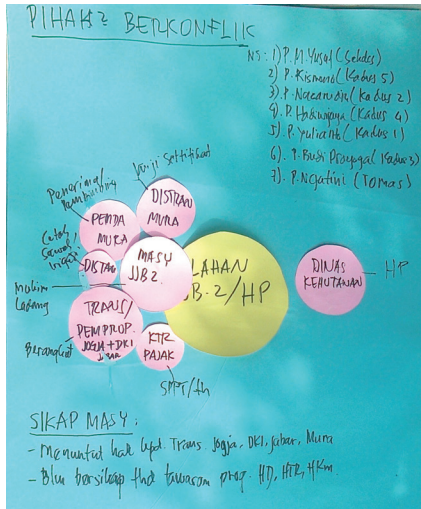 PIHAK² BERKONFLIK
NS: 1) P.M. Yusuf (Sekdes)
2) P. Kismono (Kadus 5)
3) P. Nazarudin (Kadus 2)
4) P. Hadiwijaya (Kadus 4)
5) P. Yulianto (Kadus 1)
6). P. Budi Prayogal (Kadus 3)
7). P. Ngatini (Tomas)
Janji Settifikat
Penerima/
Pembimbing
DISTRAN
MURA
PEMDA
MURA
Cetak
Sawah/
Irigasi
DISTAN
MASY
JJB2
LAHAN
B-2/HP
DINAS
KEHUTANAN
HP
Mukim
Ladang
TRANS/
PEMPROP.
JOGJA+DKI
JABAR
Berangkat
KTR
PAJAK
SPPT/th
SIKAP MASY:
- Menuntut hak kpd. Trans. Jogja, DKI, Jabar, Mura
- Blm bersikap thd tawaran prog. HD, HTR, HKm.